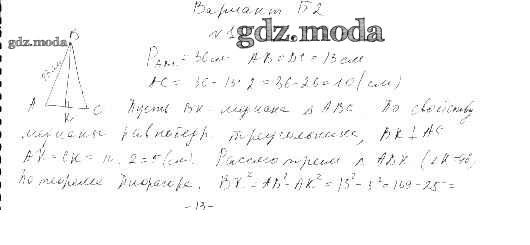 Вариант П2
№1 gdz.moda
gdz.moda B
P = 36 см AB = BC = 13 см
13 см AC = 36 - 13 · 2 = 36 - 26 = 10 (см)
A K C Пусть BK - медиана Δ ABC. По свойству
медианы равнобедр. треугольника, BK ⊥ AC
AK = CK = 10 : 2 = 5 (см). Рассмотрим Δ ABK
По теореме Пифагора. BK² = AB² - AK² = 13² - 5² = 169 - 25 =
- 13 -